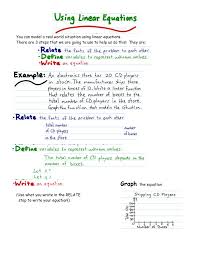 Using Linear Equations
You can model a real world situation using linear equations.
There are 3 steps that we are going to use to help us do this! They are:
• Relate the facts of the problem to each other.
• Define variables to represent unknown values.
• Write an equation.
Example: An electronics store has 20 CD players
in stock. The manufacturer ships these
players in boxes of 5. Write a linear function
that relates the number of boxes to the
total number of CD players in the store.
Graph the equation.
• Relate the facts of the problem to each other
total number
of CD players
in the store
number
of boxes
• Define variables to represent unknown values.
The total number of CD players depends on the
number of boxes.
Let x =
Let y =
• Write an equation
(Use what you wrote in the RELATE
step to write your equation!)
Graph the equation
Shipping CD Players
Number of Boxes